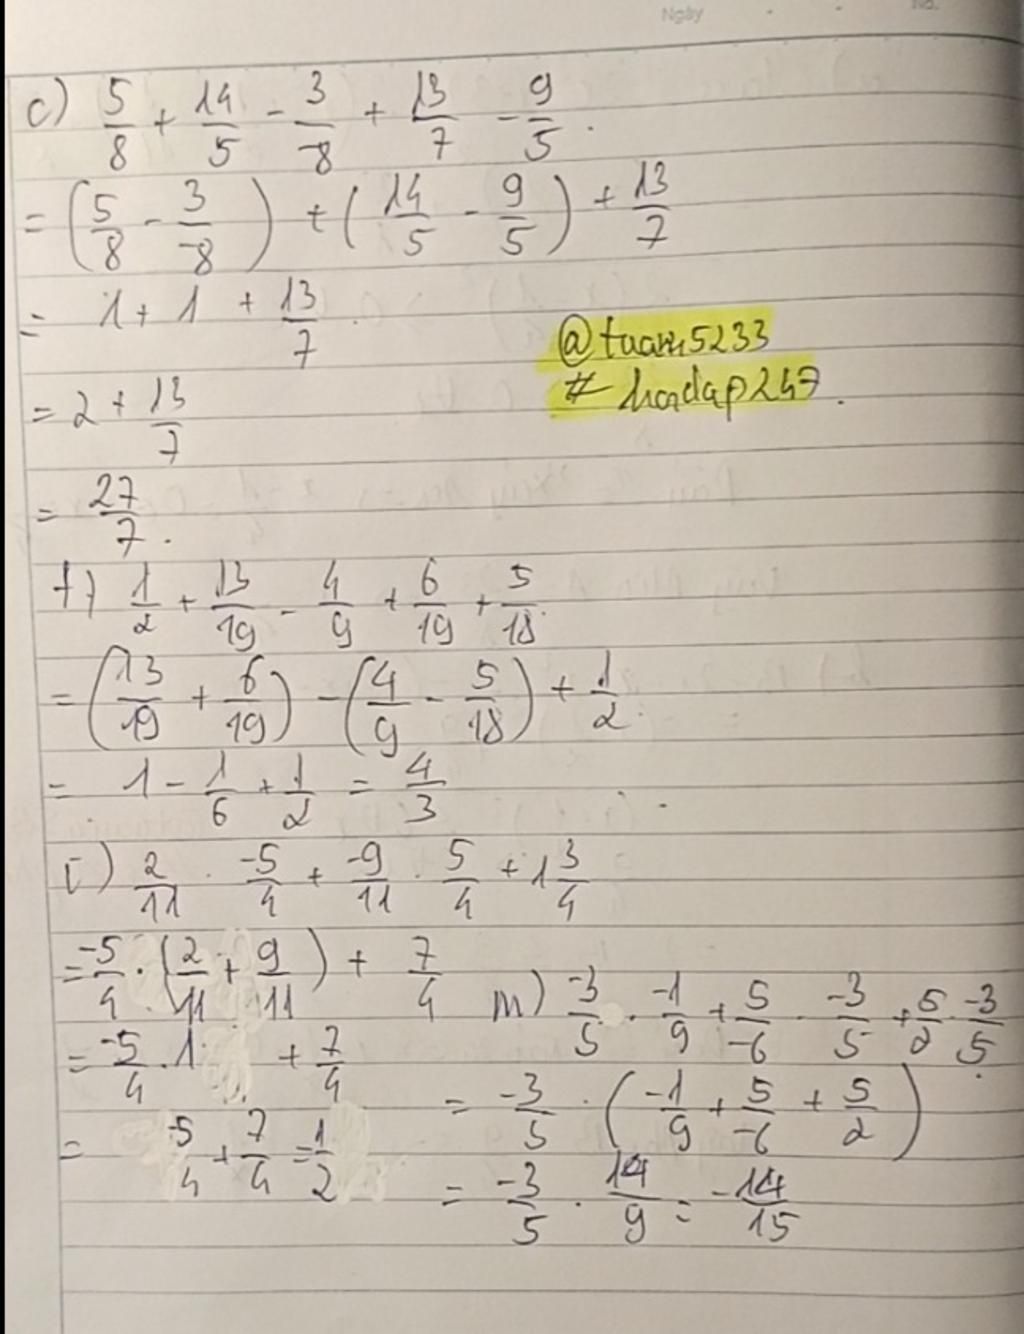 Ngày No.
c) 5/8 + 14/5 - 3/-8 + 13/7 - 9/5.
= (5/8 - 3/-8) + (14/5 - 9/5) + 13/7
= 1 + 1 + 13/7.
= 2 + 13/7
= 27/7.
@tuam5233
# hoidap247.
f) 1/2 + 13/19 - 4/9 + 6/19 + 5/18.
= (13/19 + 6/19) - (4/9 - 5/18) + 1/2.
= 1 - 1/6 + 1/2 = 4/3.
i) 2/11 . -5/4 + -9/11 . 5/4 + 1 3/4
= -5/4 . (2/11 + 9/11) + 7/4
= -5/4 . 1 + 7/4
= -5/4 + 7/4 = 1/2
m) -3/5 . -1/9 + 5/-6 . -3/5 + 5/2 . -3/5.
= -3/5 . (-1/9 + 5/-6 + 5/2)
= -3/5 . 14/9 = -14/15